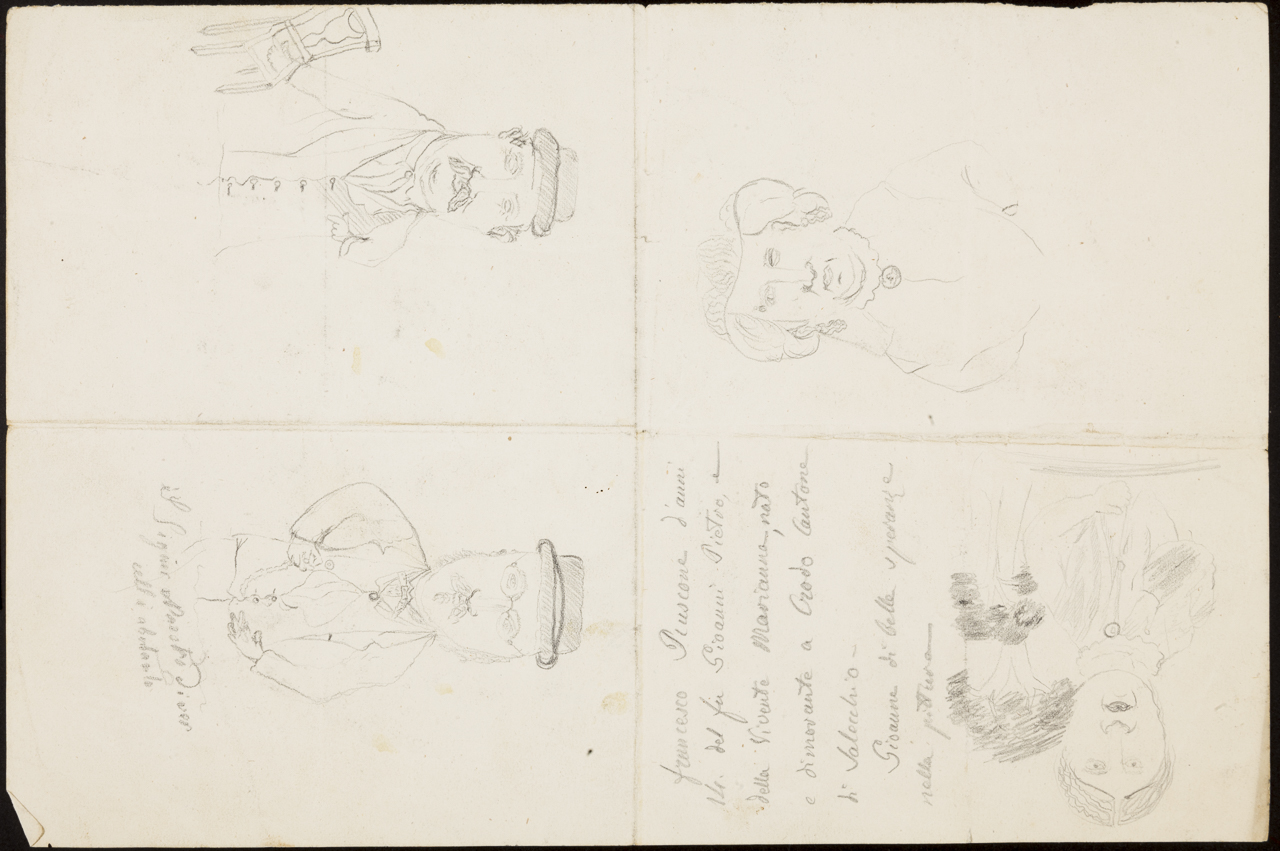 Francesco Pinscone d'anni
14. del fu Gioanni Pietro, e
della Vivente Marianna, nato
e dimorante a Crodo Cantone
di Salecchio -
Gioanne di belle speranze
nella pittura
Il Signor Maestro